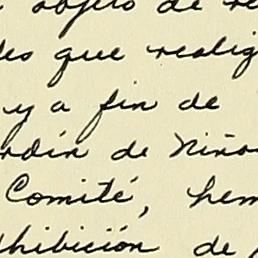 objeto de re
des que realiq
y a fin de
rdín de Niño
Comité, hem
hibición de